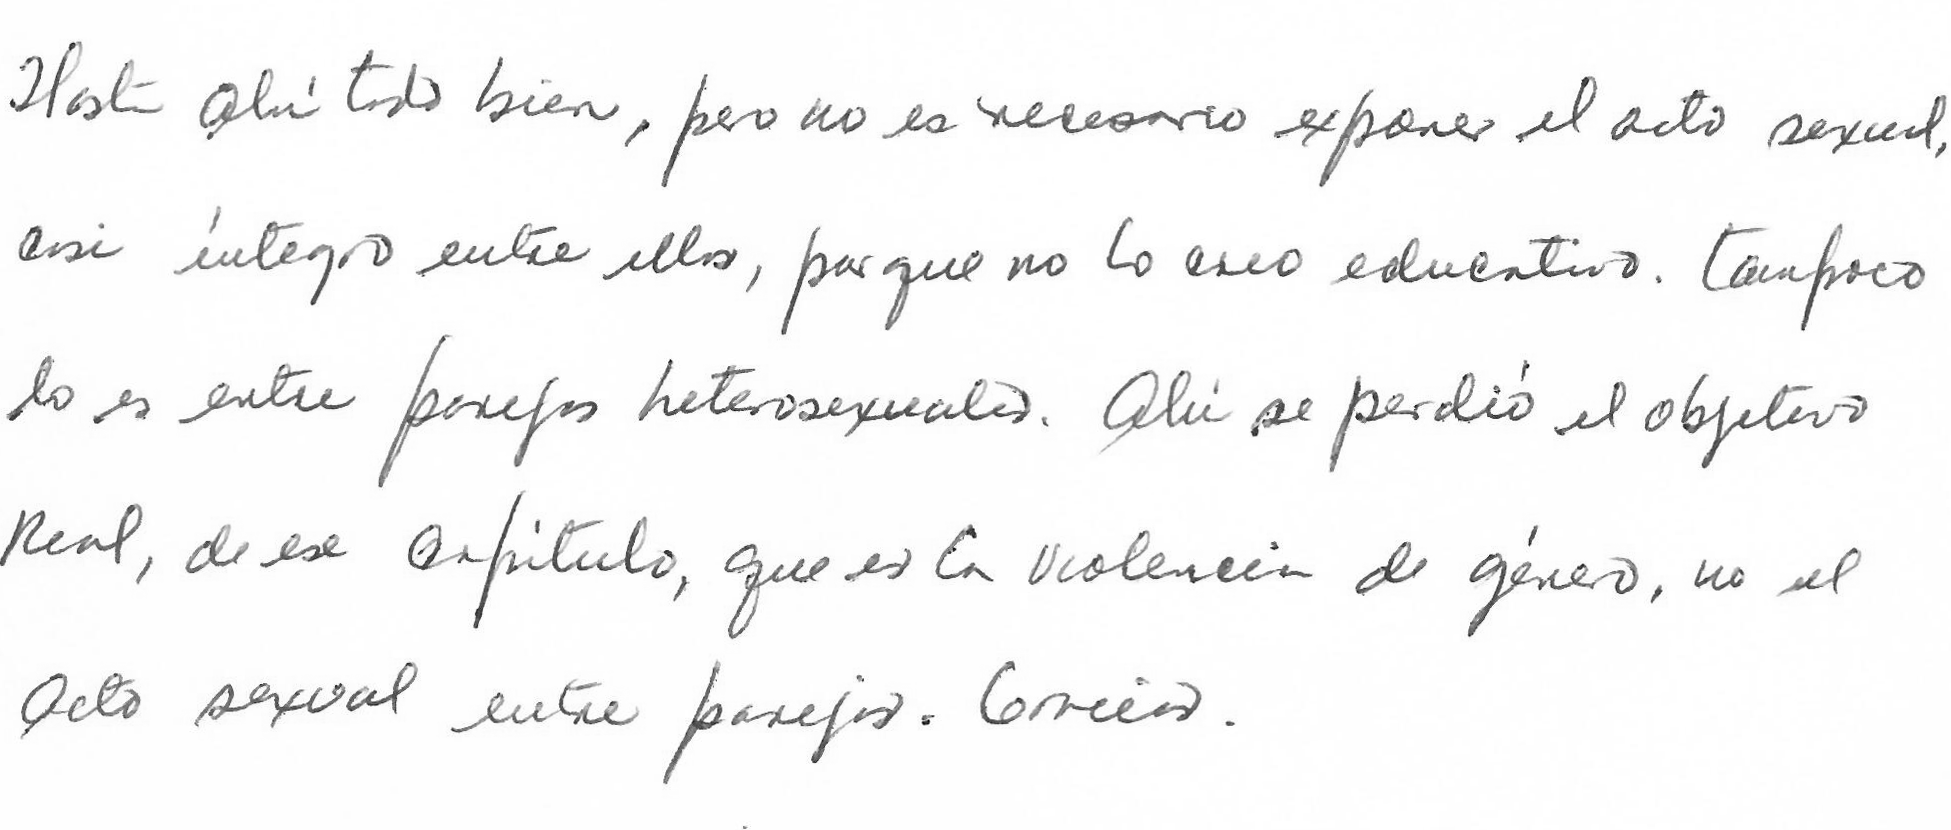 Hasta ahí todo bien, pero no es necesario exponer el acto sexual,
casi íntegro entre ellos, porque no lo creo educativo. Tampoco
lo es entre parejas heterosexuales. Ahí se perdió el objetivo
Real, de ese capítulo, que es la violencia de género, no el
acto sexual entre parejas. Gracias.